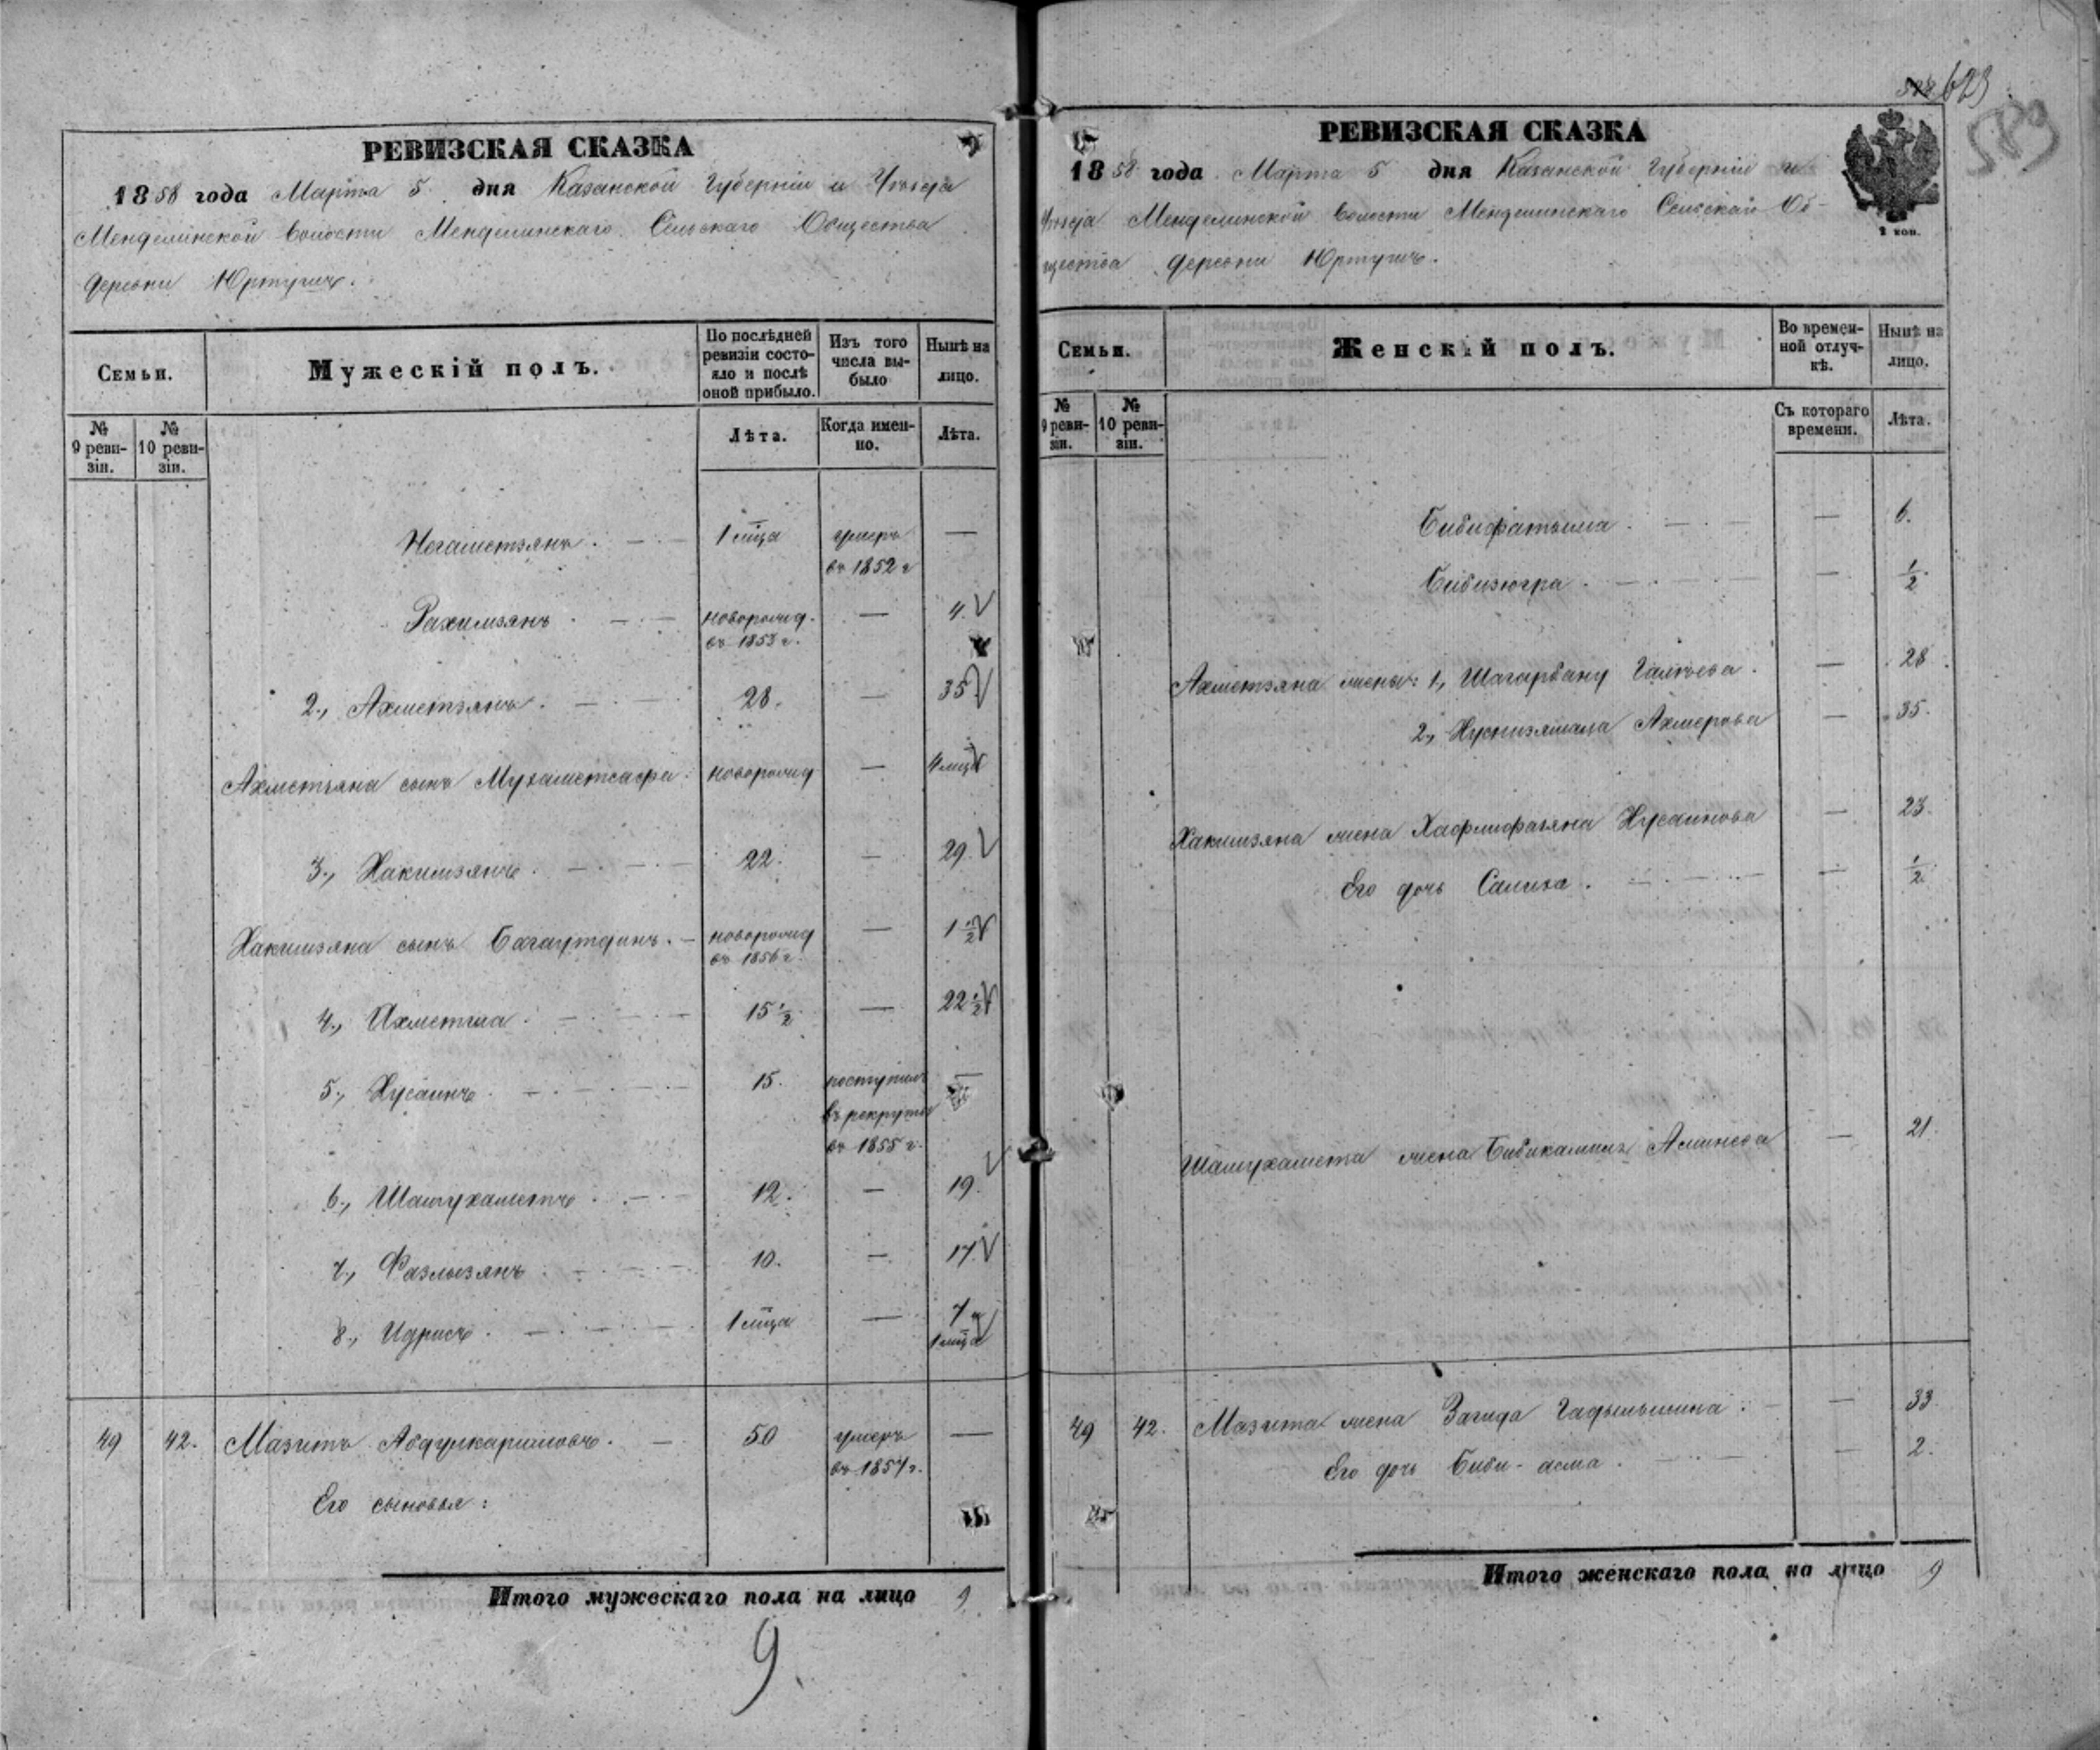 РЕВИЗСКАЯ СКАЗКА
1858 года Марта 5 дня Казанской Губерніи и Уѣзда
Менделинской волости Менделинскаго Сельскаго Общества
деревни Юртушъ.
Семьи.
Мужескій полъ.
По послѣдней ревизіи состояло и послѣ оной прибыло.
Изъ того числа выбыло
Нынѣ на лицо.
№ 9 ревизіи.
№ 10 ревизіи.
Лѣта.
Когда именно.
Лѣта.
Негаметзянъ. — 1 мца умеръ въ 1852 г —
Рахимзянъ — новорожд. въ 1853 г. — 4.
2., Ахметзянъ. — 28. — 35
Ахметзяна сынъ Мухаметсафа. новорожд — 4 мца
3., Хакимзянъ. — 22. — 29.
Хакимзяна сынъ Багаутдинъ. — новорожд въ 1856 г. — 1 1/2
4., Ихметша — 15 1/2 — 22 1/2
5., Хусаинъ. — 15. поступилъ въ рекруты въ 1855 г. —
6., Шамухаметъ. — 12. — 19.
7., Фазлызянъ — 10. — 17.
8., Идрисъ. — 1 мца — 7 и 1 мца
49 42. Мазитъ Абдулкаримовъ. — 50 умеръ въ 1857 г. —
Его сыновья:
Итого мужескаго пола на лицо 9
9.
623
589
РЕВИЗСКАЯ СКАЗКА
1858 года Марта 5 дня Казанской Губерніи и
Уѣзда Менделинской волости Менделинскаго Сельскаго Об-
щества деревни Юртушъ.
2 коп.
Семьи.
Женскій полъ.
Во временной отлучкѣ.
Нынѣ на лицо.
№ 9 ревизіи.
№ 10 ревизіи.
Съ котораго времени.
Лѣта.
Бибифатыма. — — 6.
Бибизюгра. — — 1/2
Ахметзяна жены: 1, Шагарбану Галѣева. — 28.
2, Хуснизямала Ахмерова — 35.
Хакимзяна жена Хусаинова — 23.
Его дочь Салиха. — — 1/2
Шамухамета жена Бибикамилъ Аминева — 21.
49 42. Мазита жена Загида Гадыльшина. — 33
Его дочь Биби-асма. — — 2.
Итого женскаго пола на лицо 9